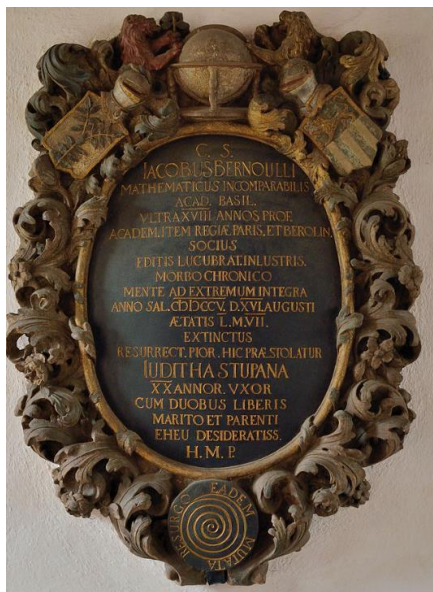 C. S.
IACOBUS BERNOULLI
MATHEMATICUS INCOMPARABILIS
ACAD. BASIL.
VLTRA XVIII ANNOS PROF.
ACADEM. ITEM REGIÆ PARIS. ET BEROLIN.
SOCIUS
EDITIS LUCUBRAT. INLUSTRIS.
MORBO CHRONICO
MENTE AD EXTREMUM INTEGRA
ANNO SAL. CIↃIↃCCV. D. XVI. AUGUSTI
ÆTATIS L. M. VII.
EXTINCTUS
RESURRECT. PIOR. HIC PRÆSTOLATUR
IUDITHA STUPANA
XX ANNOR. VXOR
CUM DUOBUS LIBERIS
MARITO ET PARENTI
EHEU DESIDERATISS.
H. M. P.
EADEM MUTATA RESURGO